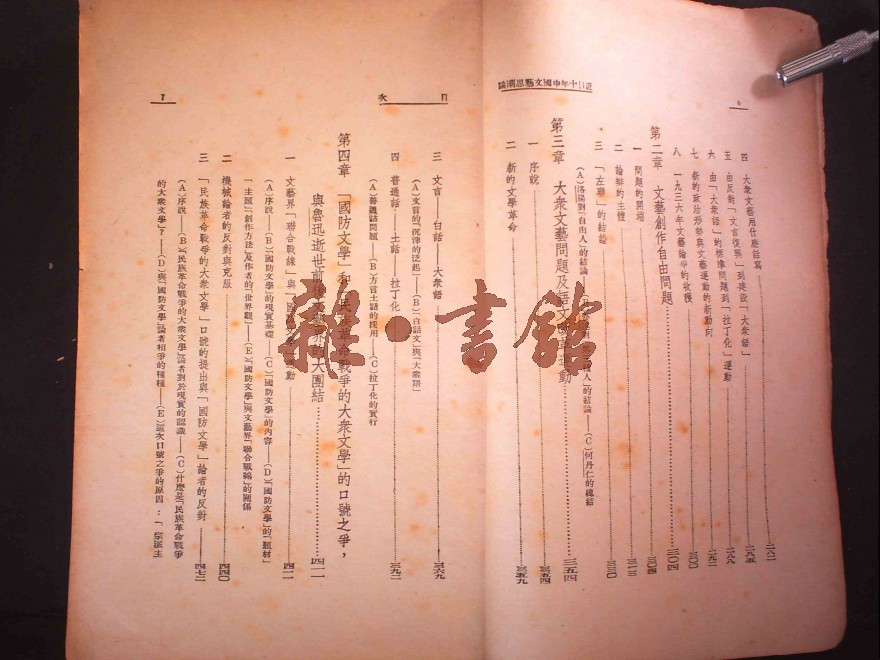 近二十年中國文藝思潮論
6
四 大衆文藝用什麽話寫……二八二
五 由反對「文言復興」到建設「大衆語」……二八五
六 由「大衆語」的標準問題到「拉丁化」運動……二八八
七 新的政治形勢與文藝運動的新動向……二九二
八 一九三六年文藝論爭的收穫
第二章 文藝創作自由問題……三〇四
一 問題的開端……三〇四
二 論辯的主體……三一三
三 「左聯」的結論……三三〇
(A)洛揚對「自由人」的結論 人」的結論——(C)何丹仁的總結
第三章 大衆文藝問題及語文改革運動……三五四
一 序說……三五四
二 新的文學革命……三五九
目次
7
三 文言——白話——大衆語……三六九
(A)文言的「沉滓的泛起」——(B)「白話文」與「大衆語」
四 普通話——土話——拉丁化……三九二
(A)普通話問題——(B)方言土話的採用——(C)拉丁化的實行
第四章 「國防文學」和「民族革命戰爭的大衆文學」的口號之爭,
與魯迅逝世前後文藝界的大團結……四一一
一 文藝界「聯合戰線」與「國防文學」運動……四一一
(A)序說——(B)「國防文學」的現實基礎——(C)「國防文學」的內容——(D)「國防文學」的「題材」
「主題」「創作方法」及作者的「世界觀」——(E)「國防文學」與文藝界「聯合戰線」的關係
二 機械論者的反對與克服……四四〇
三 「民族革命戰爭的大衆文學」口號的提出與「國防文學」論者的反對……四七二
(A)序說——(B)「民族革命戰爭的大衆文學」論者對於現實的認識——(C)什麽是「民族革命戰爭
的大衆文學」?——(D)與「國防文學」論者相爭的種種——(E)這次口號之爭的原因:「宗派主
雜·書館